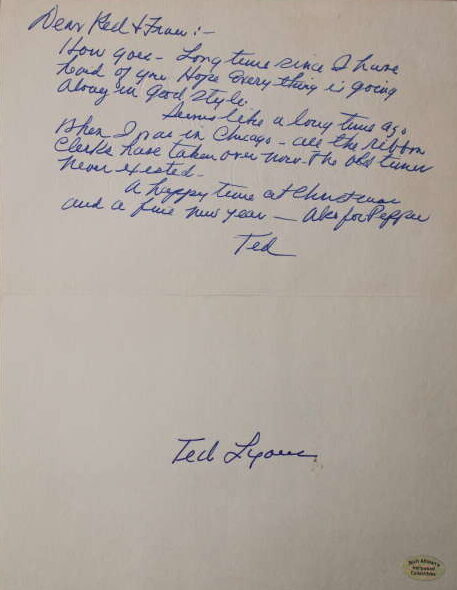 Dear Red & Fran:-
How goes - Long time since I have
heard of you. Hope everything is going
along in Good Style.
Seems like a long time ago
When I was in Chicago - all the ribbon
Clerks have taken over now. The old timer
never existed -
A happy time at Christmas
and a fine new year - Also for Pepper
Ted
Ted Lyons